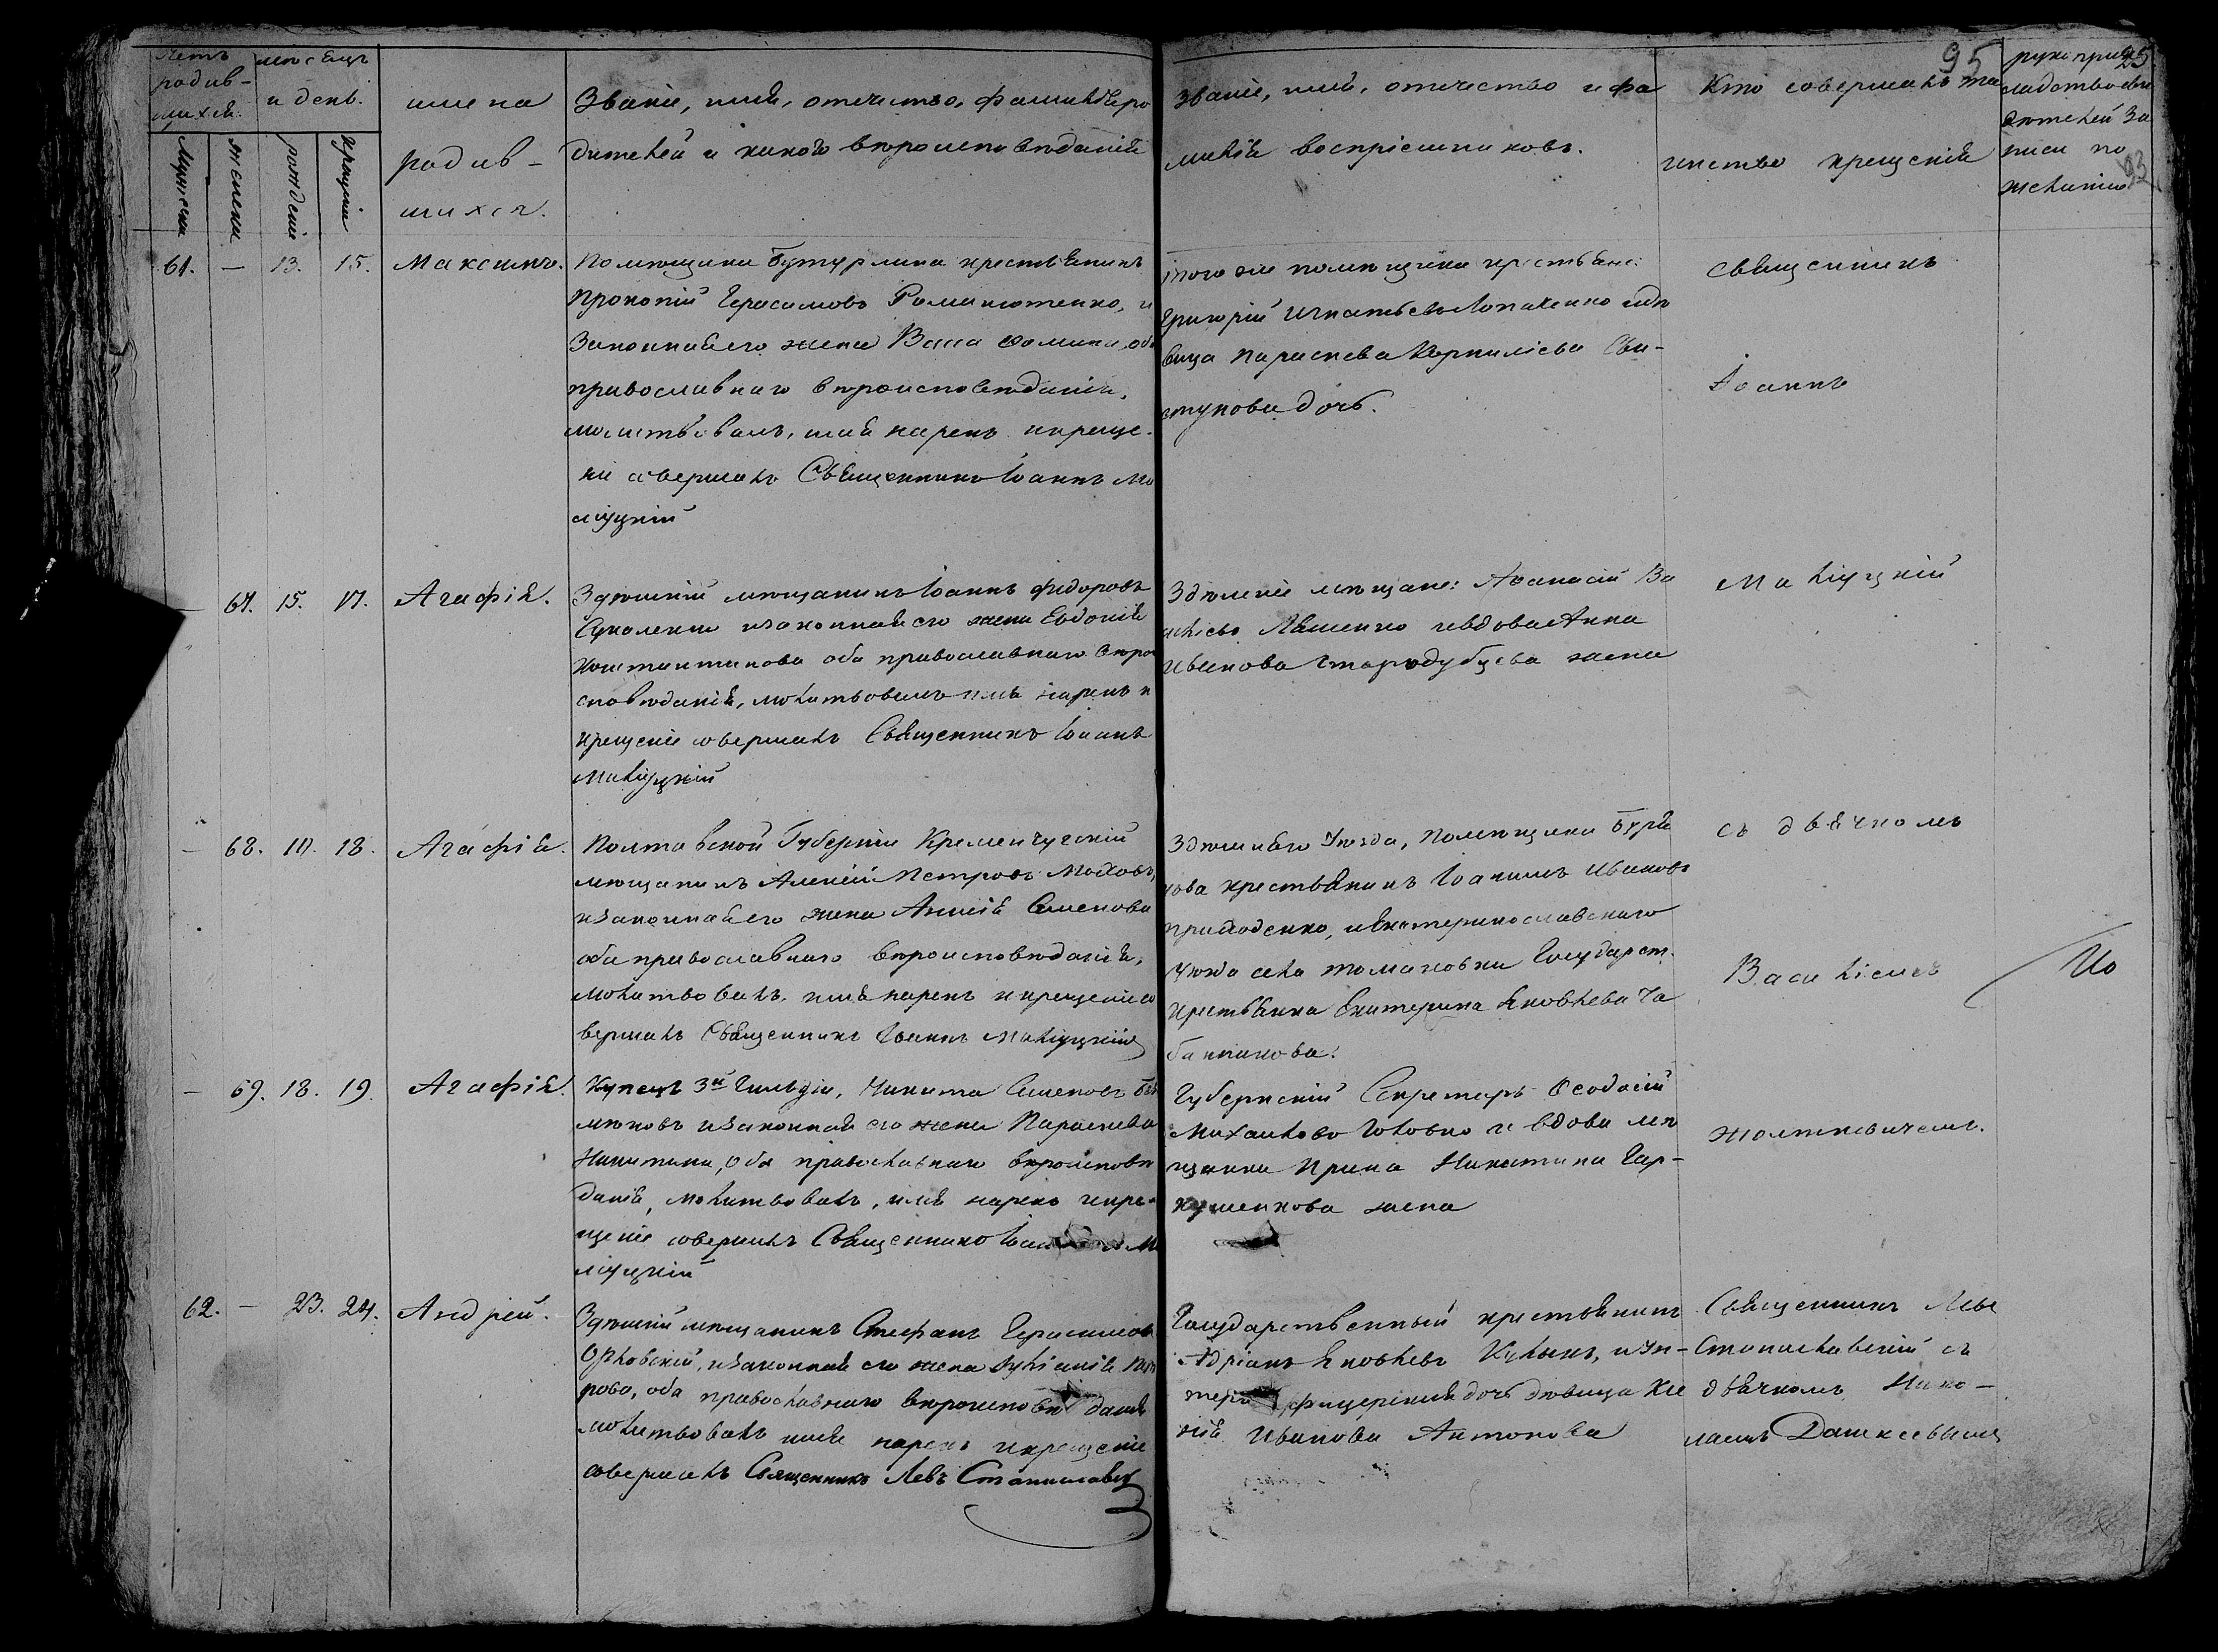 95
Счетъ родив-
шихся.
мѣсецъ
и день.
Мужеска
женска
рожденіе
крещеніе
имена
родив-
шихся.
Званіе, имя, отечество, фамилія ро
дителей и какого вѣроисповѣданія
Званіе, имя, отечество и фа
милія воспріемниковъ.
Кто совершалъ та
инство крещенія
руко прик
ладство сви
дѣтелей за
писи по
желанію
61. — 13. 15. Максимъ.
Помѣщика Бутурлина крестьянинъ
Прокопій Герасимовъ Романютенко, и
Законная его жена Васса Фомина, оба
православнаго вѣроисповѣданія,
молитвовалъ, имя нарекъ и креще-
ни совершалъ Священникъ Іоаннъ Ма
люцкій
того же помѣщика крестьяне:
Григорій Игнатьевъ Лопатенко и дѣ
вица Параскева Корниліева Сви-
стунова дочь.
Священникъ
Іоаннъ
Малюцкій
съ дьячкомъ
Василіемъ
Жолткевичемъ.
— 67. 15. 17. Агафія.
Здѣшній мѣщанинъ Іоаннъ Федоровъ
и законная его жена Евдокія
Константинова оба православнаго вѣрои
сповѣданія, молитвовалъ имя нарекъ и
крещеніе совершалъ Священникъ Іоаннъ
Малюцкій
Здѣшніе мѣщане: Афанасій Ва
сильевъ Ляшенко и вдова Анна
Иванова Стародубцева жена
— 68. 17. 18. Агафія.
Полтавской Губерніи Кременчугскій
мѣщанинъ Алексій Петровъ Моховъ,
и законная его жена Анисія Семенова
оба православнаго вѣроисповѣданія,
молитвовалъ, имя нарекъ и крещеніе со
вершалъ Священникъ Іоаннъ Малюцкій
Здѣшняго Уѣзда, Помѣщика Буря
кова крестьянинъ Іоакимъ Ивановъ
Приходенко, и Екатеринославскаго
Уѣзда села Томаковки Государст.
крестьянка Екатерина Яковлева Ча
банникова.
Ио
— 69. 18. 19. Агафія.
Купецъ 3й Гильдіи, Никита Семеновъ
и законная его жена Параскева
Никитина, оба православнаго вѣроисповѣ
данія, молитвовалъ, имя нарекъ и кре-
щеніе совершилъ Священникъ Іоаннъ Ма
люцкій
Губернскій Секретарь Феодосій
Михайловъ Головко и вдова мѣ
щанка Ирина Никитина Гар-
кушенкова жена
62. — 23. 24. Андрей.
Здѣшній мѣщанинъ Стефанъ Герасимовъ
Орловскій, и законная его жена Іуліанія Пет
рова, оба православнаго вѣроисповѣданія
молитвовалъ имя нарекъ и крещеніе
совершалъ Священникъ Левъ Станиславск
Государственный крестьянинъ
Адріанъ Яковлевъ Кулыкъ, и Ун-
теръ офицерская дочь дѣвица Ксе
нія Иванова Антонова
Священникъ Левъ
Станиславскій съ
дьячкомъ Нико-
лаемъ Дашкевичемъ